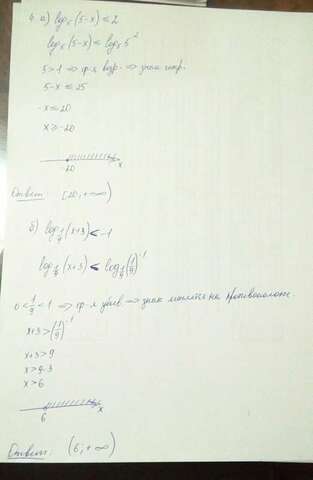 4. а) log₅(5-x) ≤ 2
log₅(5-x) ≤ log₅5²
5>1 ⇒ ф-я возр. ⇒ знак сохр.
5-x ≤ 25
-x ≤ 20
x ≥ -20
-20 x
Ответ [20; +∞)
б) log₁/₉(x+3) < -1
log₁/₉(x+3) < log₁/₉(1/9)⁻¹
0 < 1/9 < 1 ⇒ ф-я убыв ⇒ знак меняется на противополож.
x+3 > (1/9)⁻¹
x+3 > 9
x > 9-3
x > 6
6 x
Ответ: (6; +∞)